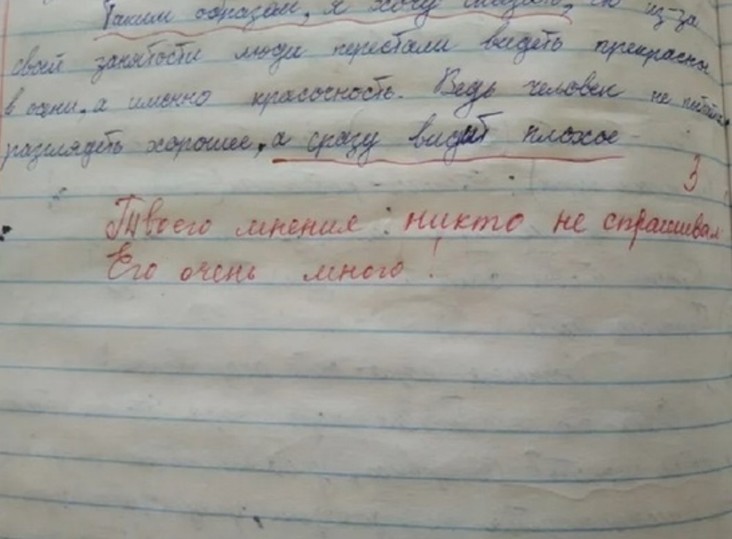 Таким образом, я хочу сказать, что из-за
своей занятости люди перестали видеть прекрасны
в осени, а именно красочность. Ведь человек не пытается
разглядеть хорошее, а сразу видит плохое
3
Твоего мнения никто не спрашивал
Его очень много!